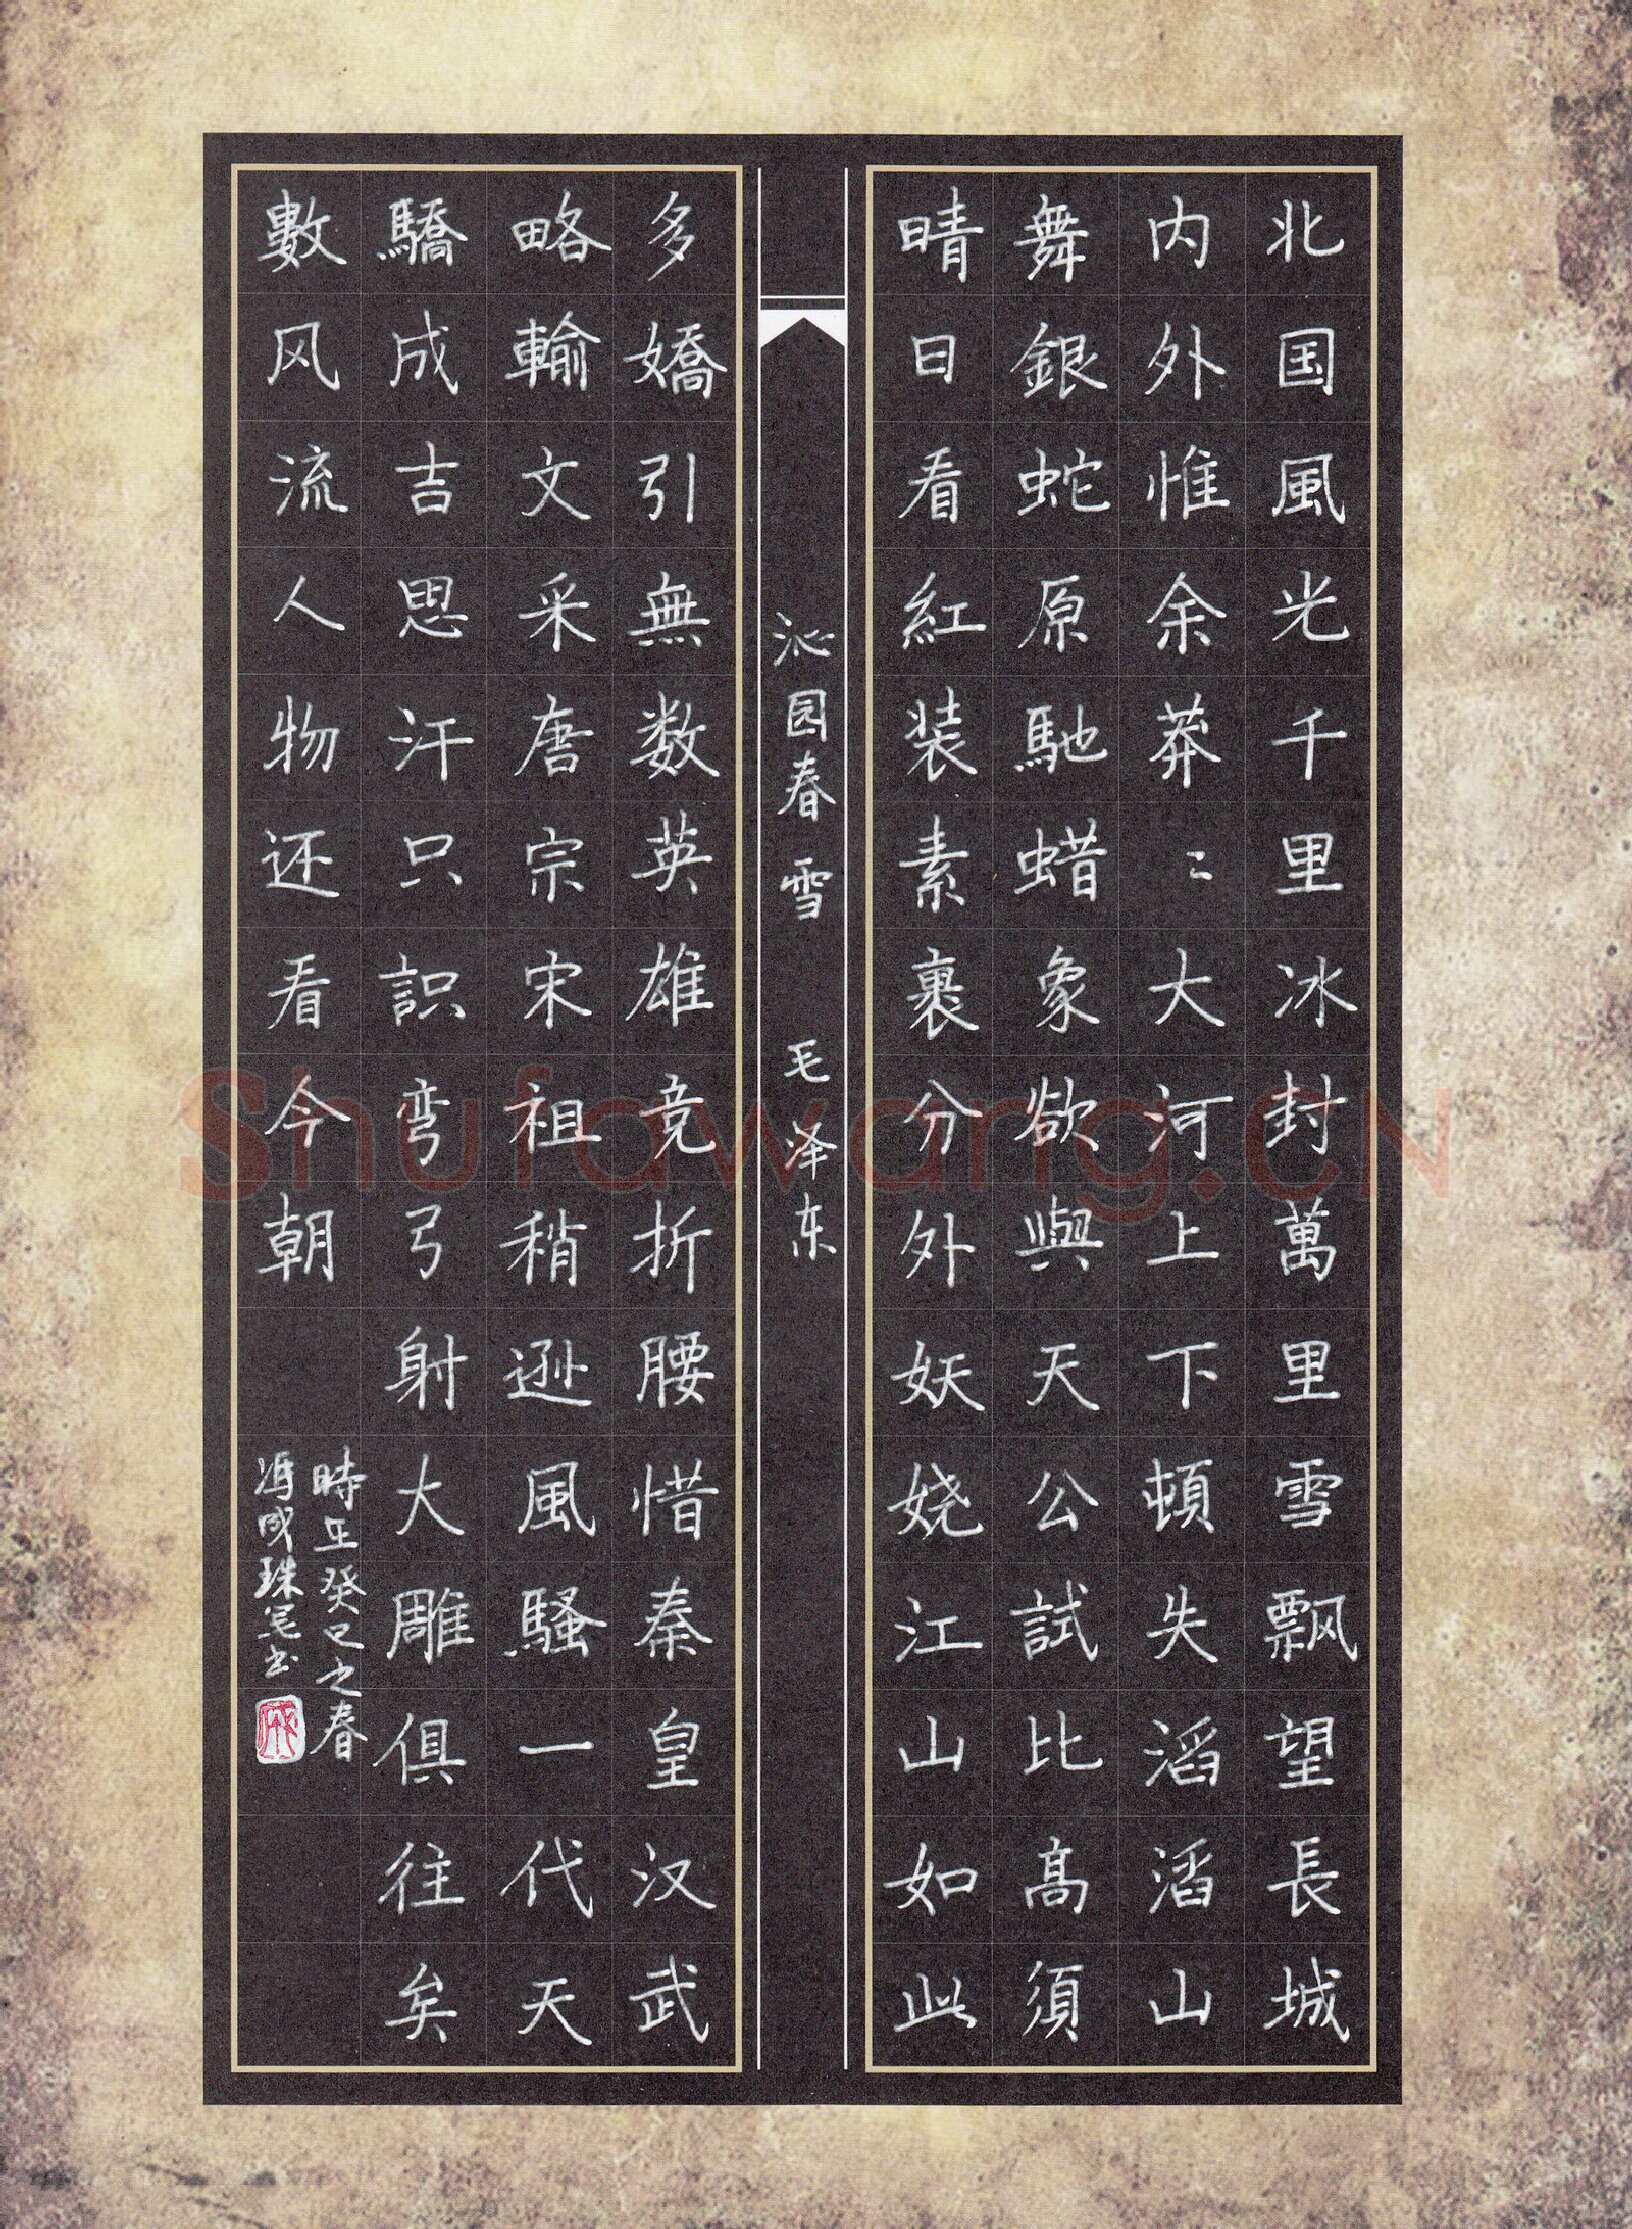 北国風光千里冰封萬里雪飘望長城
内外惟余莽〻大河上下頓失滔滔山
舞銀蛇原馳蜡象欲與天公試比高須
晴日看紅装素裹分外妖娆江山如此
沁园春 雪 毛泽东
多嬌引無数英雄竞折腰惜秦皇汉武
略輸文采唐宗宋祖稍逊風騷一代天
驕成吉思汗只识弯弓射大雕俱往矣
數风流人物还看今朝
時在癸巳之春
冯成珠书
Shufawang.CN